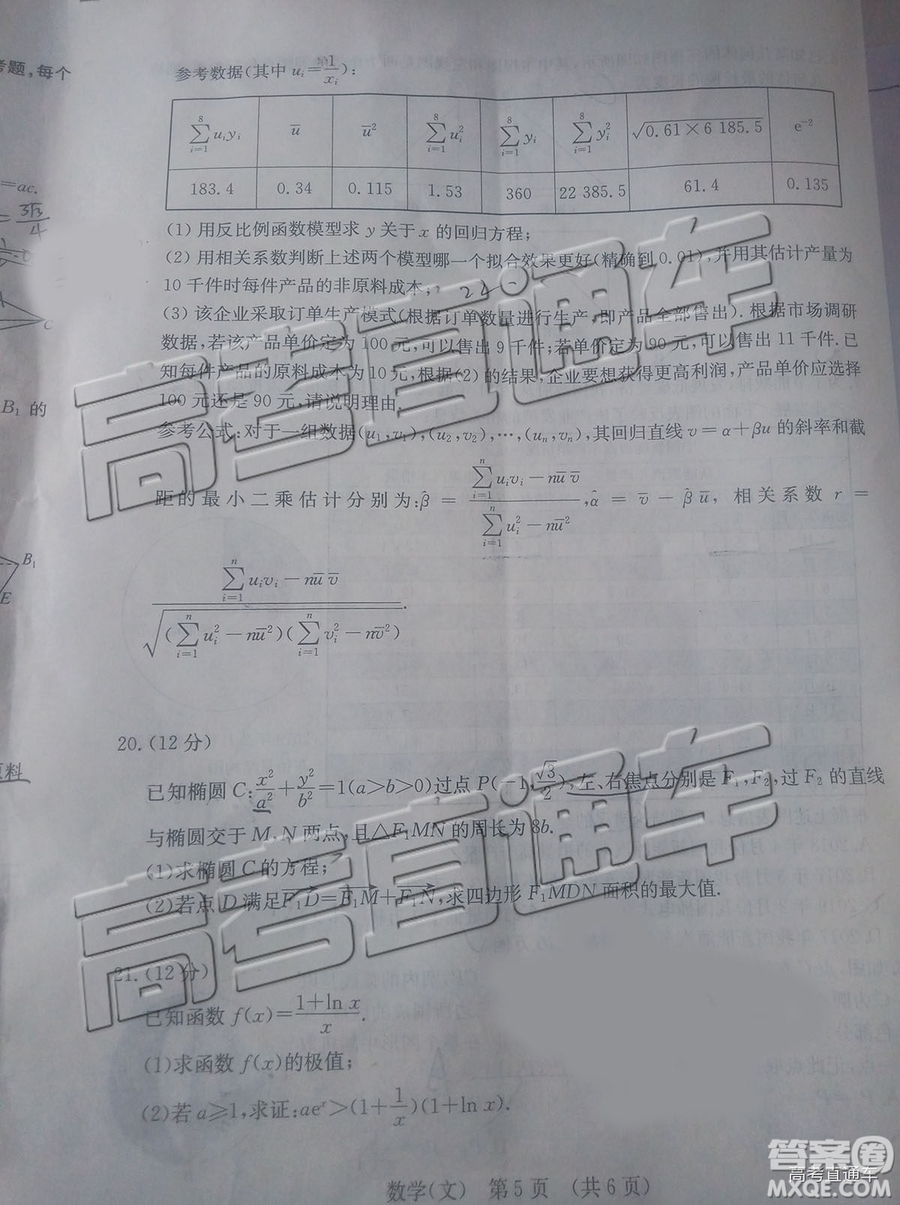 考题,每个
参考数据(其中 uᵢ=1/xᵢ):
=ac.
=3√3/4
∑(i=1→8)uᵢyᵢ ū ū² ∑(i=1→8)uᵢ² ∑(i=1→8)yᵢ ∑(i=1→8)yᵢ² √(0.61×6 185.5) e⁻²
183.4 0.34 0.115 1.53 360 22 385.5 61.4 0.135
(1) 用反比例函数模型求 y 关于 x 的回归方程;
(2) 用相关系数判断上述两个模型哪一个拟合效果更好(精确到 0.01),并用其估计产量为
10 千件时每件产品的非原料成本;
(3) 该企业采取订单生产模式(根据订单数量进行生产,即产品全部售出). 根据市场调研
数据,若该产品单价定为 100 元,可以售出 9 千件;若单价定为 90 元,可以售出 11 千件. 已
知每件产品的原料成本为 10 元,根据(2) 的结果,企业要想获得更高利润,产品单价应选择
100 元还是 90 元,请说明理由.
C
B₁ 的
参考公式:对于一组数据(u₁,v₁),(u₂,v₂),…,(uₙ,vₙ),其回归直线 v=α+βu 的斜率和截
距的最小二乘估计分别为:β̂=(∑(i=1→n)uᵢvᵢ−nūv̄)/(∑(i=1→n)uᵢ²−nū²),α̂=v̄−β̂ū,相关系数 r=
(∑(i=1→n)uᵢvᵢ−nūv̄)/√((∑(i=1→n)uᵢ²−nū²)(∑(i=1→n)vᵢ²−nv̄²)).
B₁
E
20.(12 分)
原料
已知椭圆 C:x²/a²+y²/b²=1(a>b>0)过点 P(−1,√3/2),左、右焦点分别是 F₁,F₂,过 F₂ 的直线
与椭圆交于 M,N 两点,且△F₁MN 的周长为 8b.
(1)求椭圆 C 的方程;
(2)若点 D 满足F₁D=F₁M+F₁N,求四边形 F₁MDN 面积的最大值.
21.(12 分)
已知函数 f(x)=(1+ln x)/x.
(1)求函数 f(x)的极值;
(2)若 a⩾1,求证:aeˣ>(1+1/x)(1+ln x).
数学(文) 第 5 页 (共 6 页)
高考直通车
高考直通车
答案圈
高考直通车
MXQE.COM